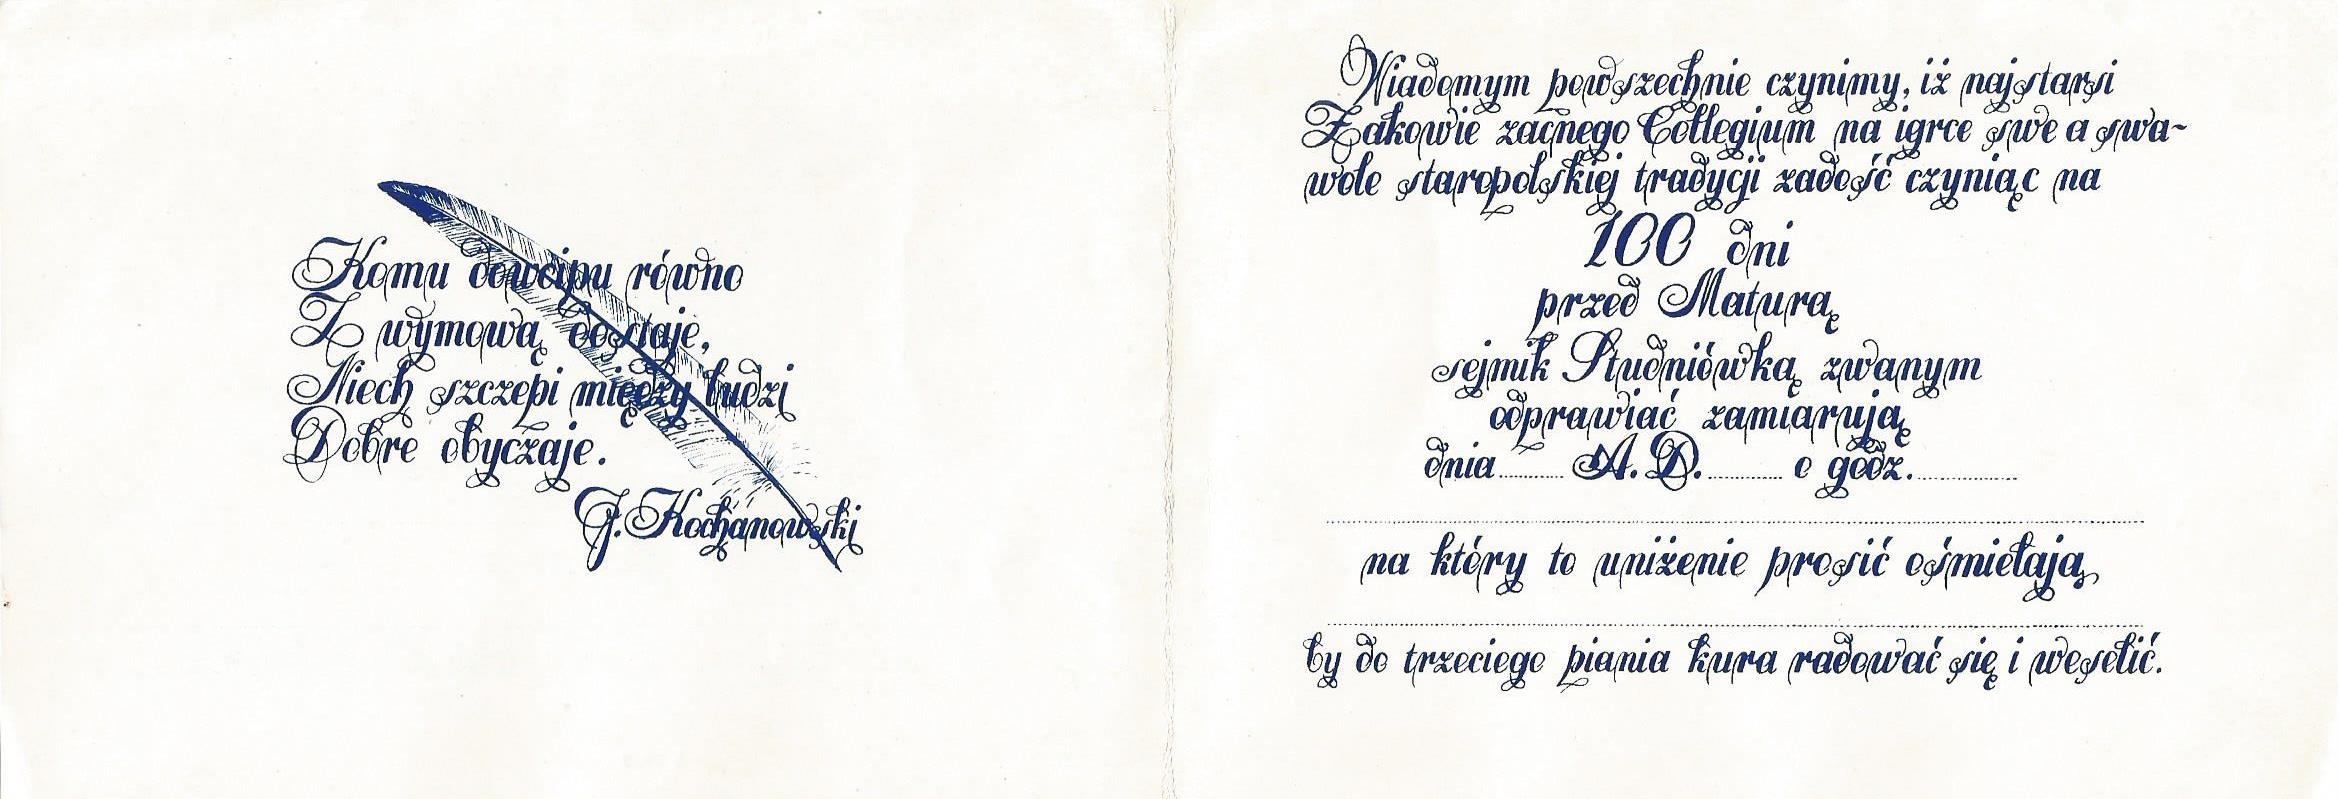 Komu dowcipu równo
Z wymową dostaje,
Niech szczepi między ludzi
Dobre obyczaje.
J. Kochanowski
Wiadomym powszechnie czynimy, iż najstarsi
Żakowie zacnego Collegium na igrce swe a swa~
wole staropolskiej tradycji zadość czyniąc na
100 dni
przed Maturą
sejmik Studniówką zwanym
odprawiać zamiarują
dnia........ A. D. ......... o godz. ............
na który to uniżenie prosić ośmielają
by do trzeciego piania kura radować się i weselić.